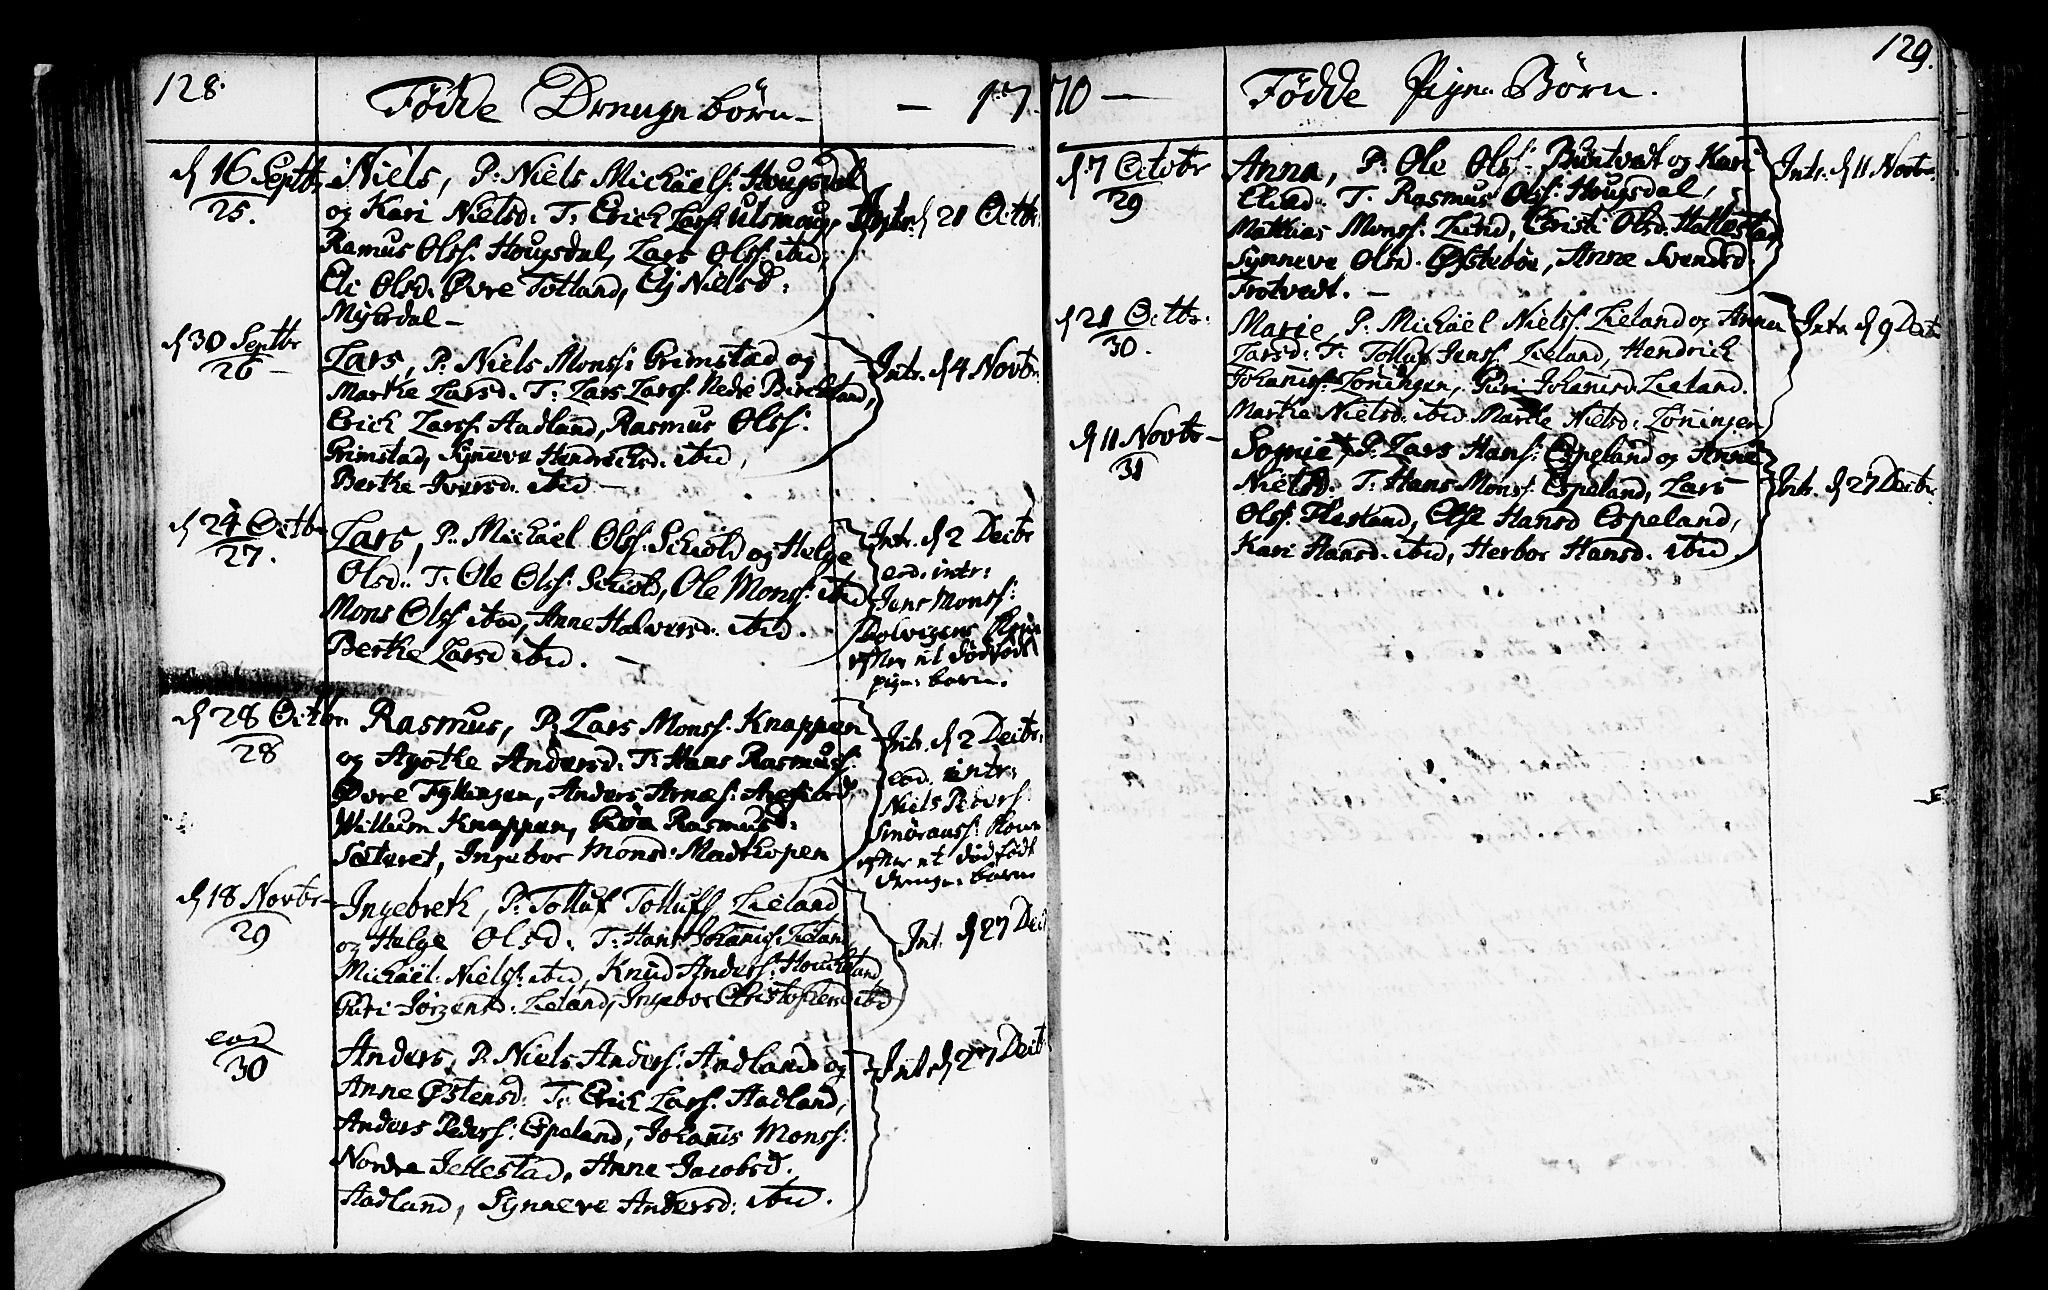 128.
Fødde Drenge børn — 17
d 16 Septbr
25.
Niels, P: Niels Michäels: Hougsdal
og Kari Nielsd: T: Erich Larss: Ulsmoug,
Rasmus Olss: Hougsdal, Lars Olss: ibid,
Eli Olsd: Øvre Totland, Elj Nielsd:
Myhrdal —
Intr: d 21 Octbr:
d 30 Septbr
26 —
Lars, P: Niels Monss: Grimstad og
Marthe Larsd: T: Lars Larss: Nedre Birkeland,
Erich Larss: Aadland, Rasmus Olss:
Grimstad, Synneve Hendrichsd: ibid,
Berthe Iversd: ibid —
Intr. d 4 Novbr:
d 24 Octbr
27.
Lars, P: Michäel Olss: Schiold og Helge
Olsd: T: Ole Olss: Schiold, Ole Monss: ibid
Mons Olss ibid, Anne Halversd: ibid.
Berthe Larsd ibid. —
Intr. d 2 Decbr
eod: intr:
Jens Monss:
Kone
efter et dødfødt
pige: barn.
d 28 Octbr
28
Rasmus, P: Lars Monss: Knappen
og Agothe Andersd: T: Hans Rasmuss:
Øvre Fyllingen, Anders Arnes:
Willum Knappen, Rasmusd:
Sæteret, Ingebor Monsd: Madthopen
Intr. d 2 Decbr:
eod. intr:
Niels Peders:
Smøraass: Kone
efter et dødfødt
drenge: barn
d 18 Novbr —
29
Ingebreth, P: Tolluf Tolluffs Lieland
og Helge Olsd: T: Hans Johanis: Lieland
Michäel: Nielss: ibid, Knud Anders: Houcheland
Guri Jørgensd: Lieland, Ingebor Christophersd ibid
Int. d 27 Dec
eod
30
Anders, P: Niels Anders: Aadland og
Anne Østensd: T: Erich Larss: Aadland,
Anders Peders: Espeland, Johanis Monss:
Nordre Jellestad, Anne Jacobsd.
Aadland, Synneve Andersd: ibid.
Intr d 27 Decb
129.
70 — Fødde Pige Børn.
d 7 Octobr
29
Anna, P: Ole Olss: Birtvedt og Kari
Elisd: T: Rasmus Olss: Hougsdal,
Mathias Monss: Lund, Christi Olsd: Hollestad
Synneve Olsd. Østebøe, Anne Svendsd:
Trotvedt. —
Intr. d 11 Novbr.
d 21 Octbr:
30.
Marie, P: Michäel Nielss: Lieland og Anna
Larsd: T: Tolluf Jenss: Lieland, Hendrich
Johaniss: Løningen, Guri Johanisd Lieland.
Marthe Nielsd: ibid Marthe Nielsd: Løningen
Intr. d 9 Decb
d 11 Novbr —
31
Sophie, P: Lars Hans: Espeland og Anne
Nielsd: T: Hans Monss: Espeland, Lars
Olss: Flesland, Else Hansd Espeland,
Kari Hansd: ibid, Herbor Hansd: ibid
Intr. d 27 Decbr